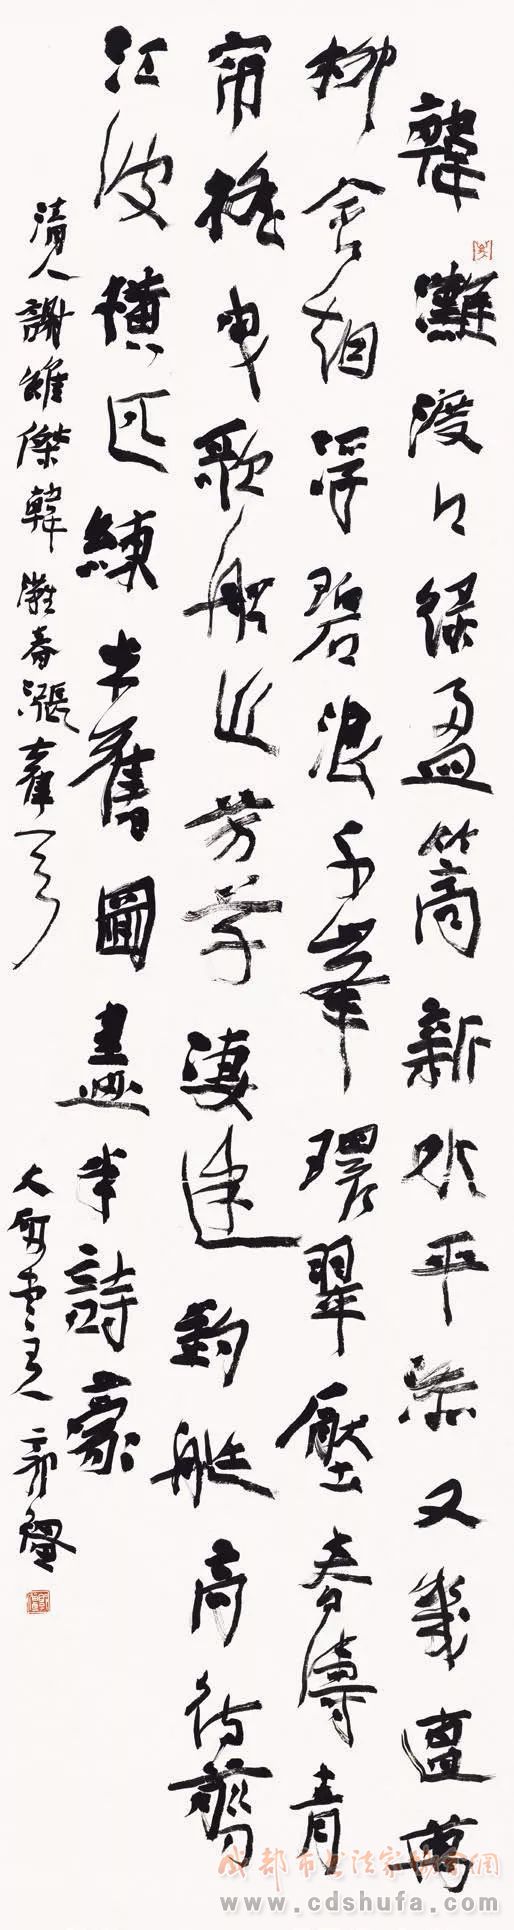 韓灘渡口綠盈篙新水平添又幾遭萬
柳含烟浮碧浪千峰環翠壓春濤青
帘搖曳歌船近芳草淒迷釣艇高待翦
江波橫匹練舊圖畫半詩豪
清人謝惟傑韓灘春漲
主人郭
成都市书法家协会网
www.cdshufa.com